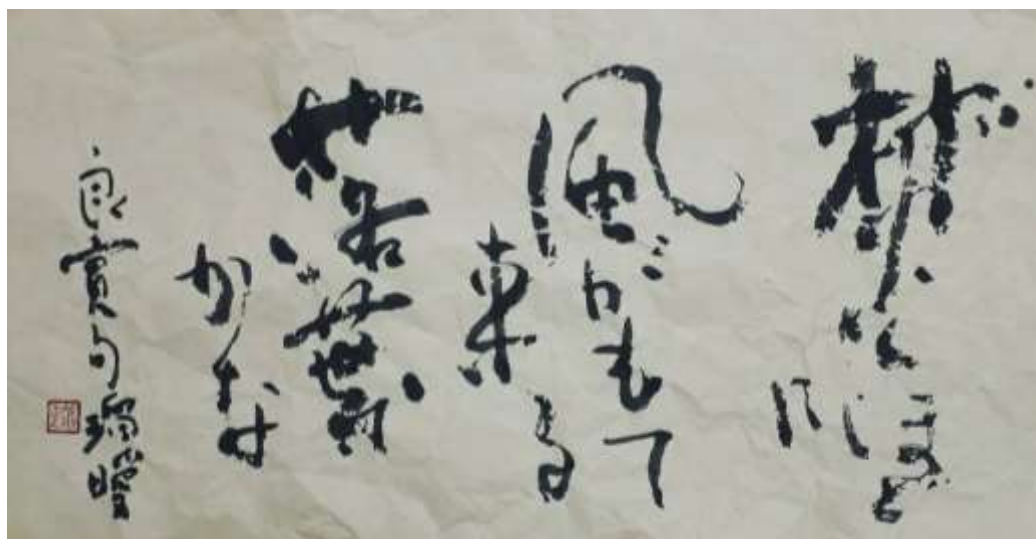 焚くほどハ
風がもて
来る
落葉
かな
良寛句